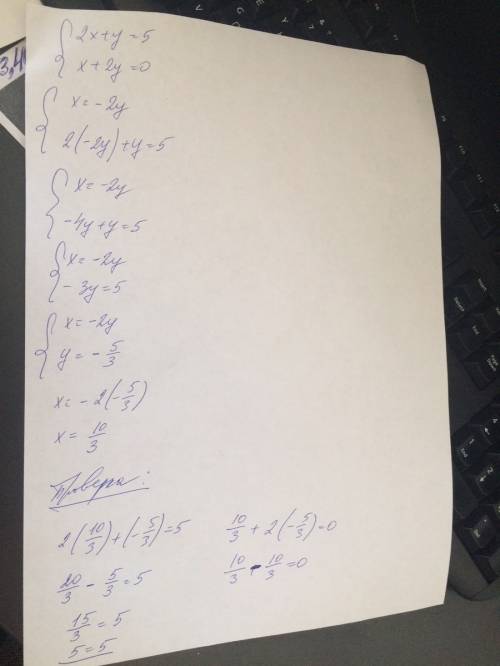 2x+y=5
x+2y=0
x=-2y
2(-2y)+y=5
x=-2y
-4y+y=5
x=-2y
-3y=5
x=-2y
y=-5/3
x=-2(-5/3)
x=10/3
Проверка:
2(10/3)+(-5/3)=5
20/3-5/3=5
15/3=5
5=5
10/3+2(-5/3)=0
10/3-10/3=0